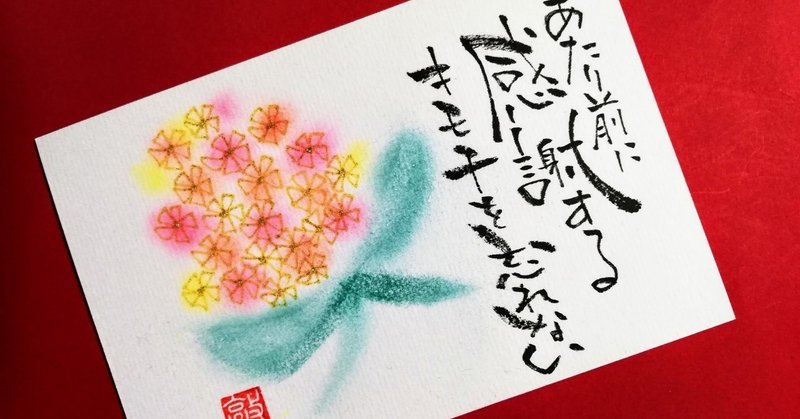 あたり前に
感謝する
キモチを忘れない